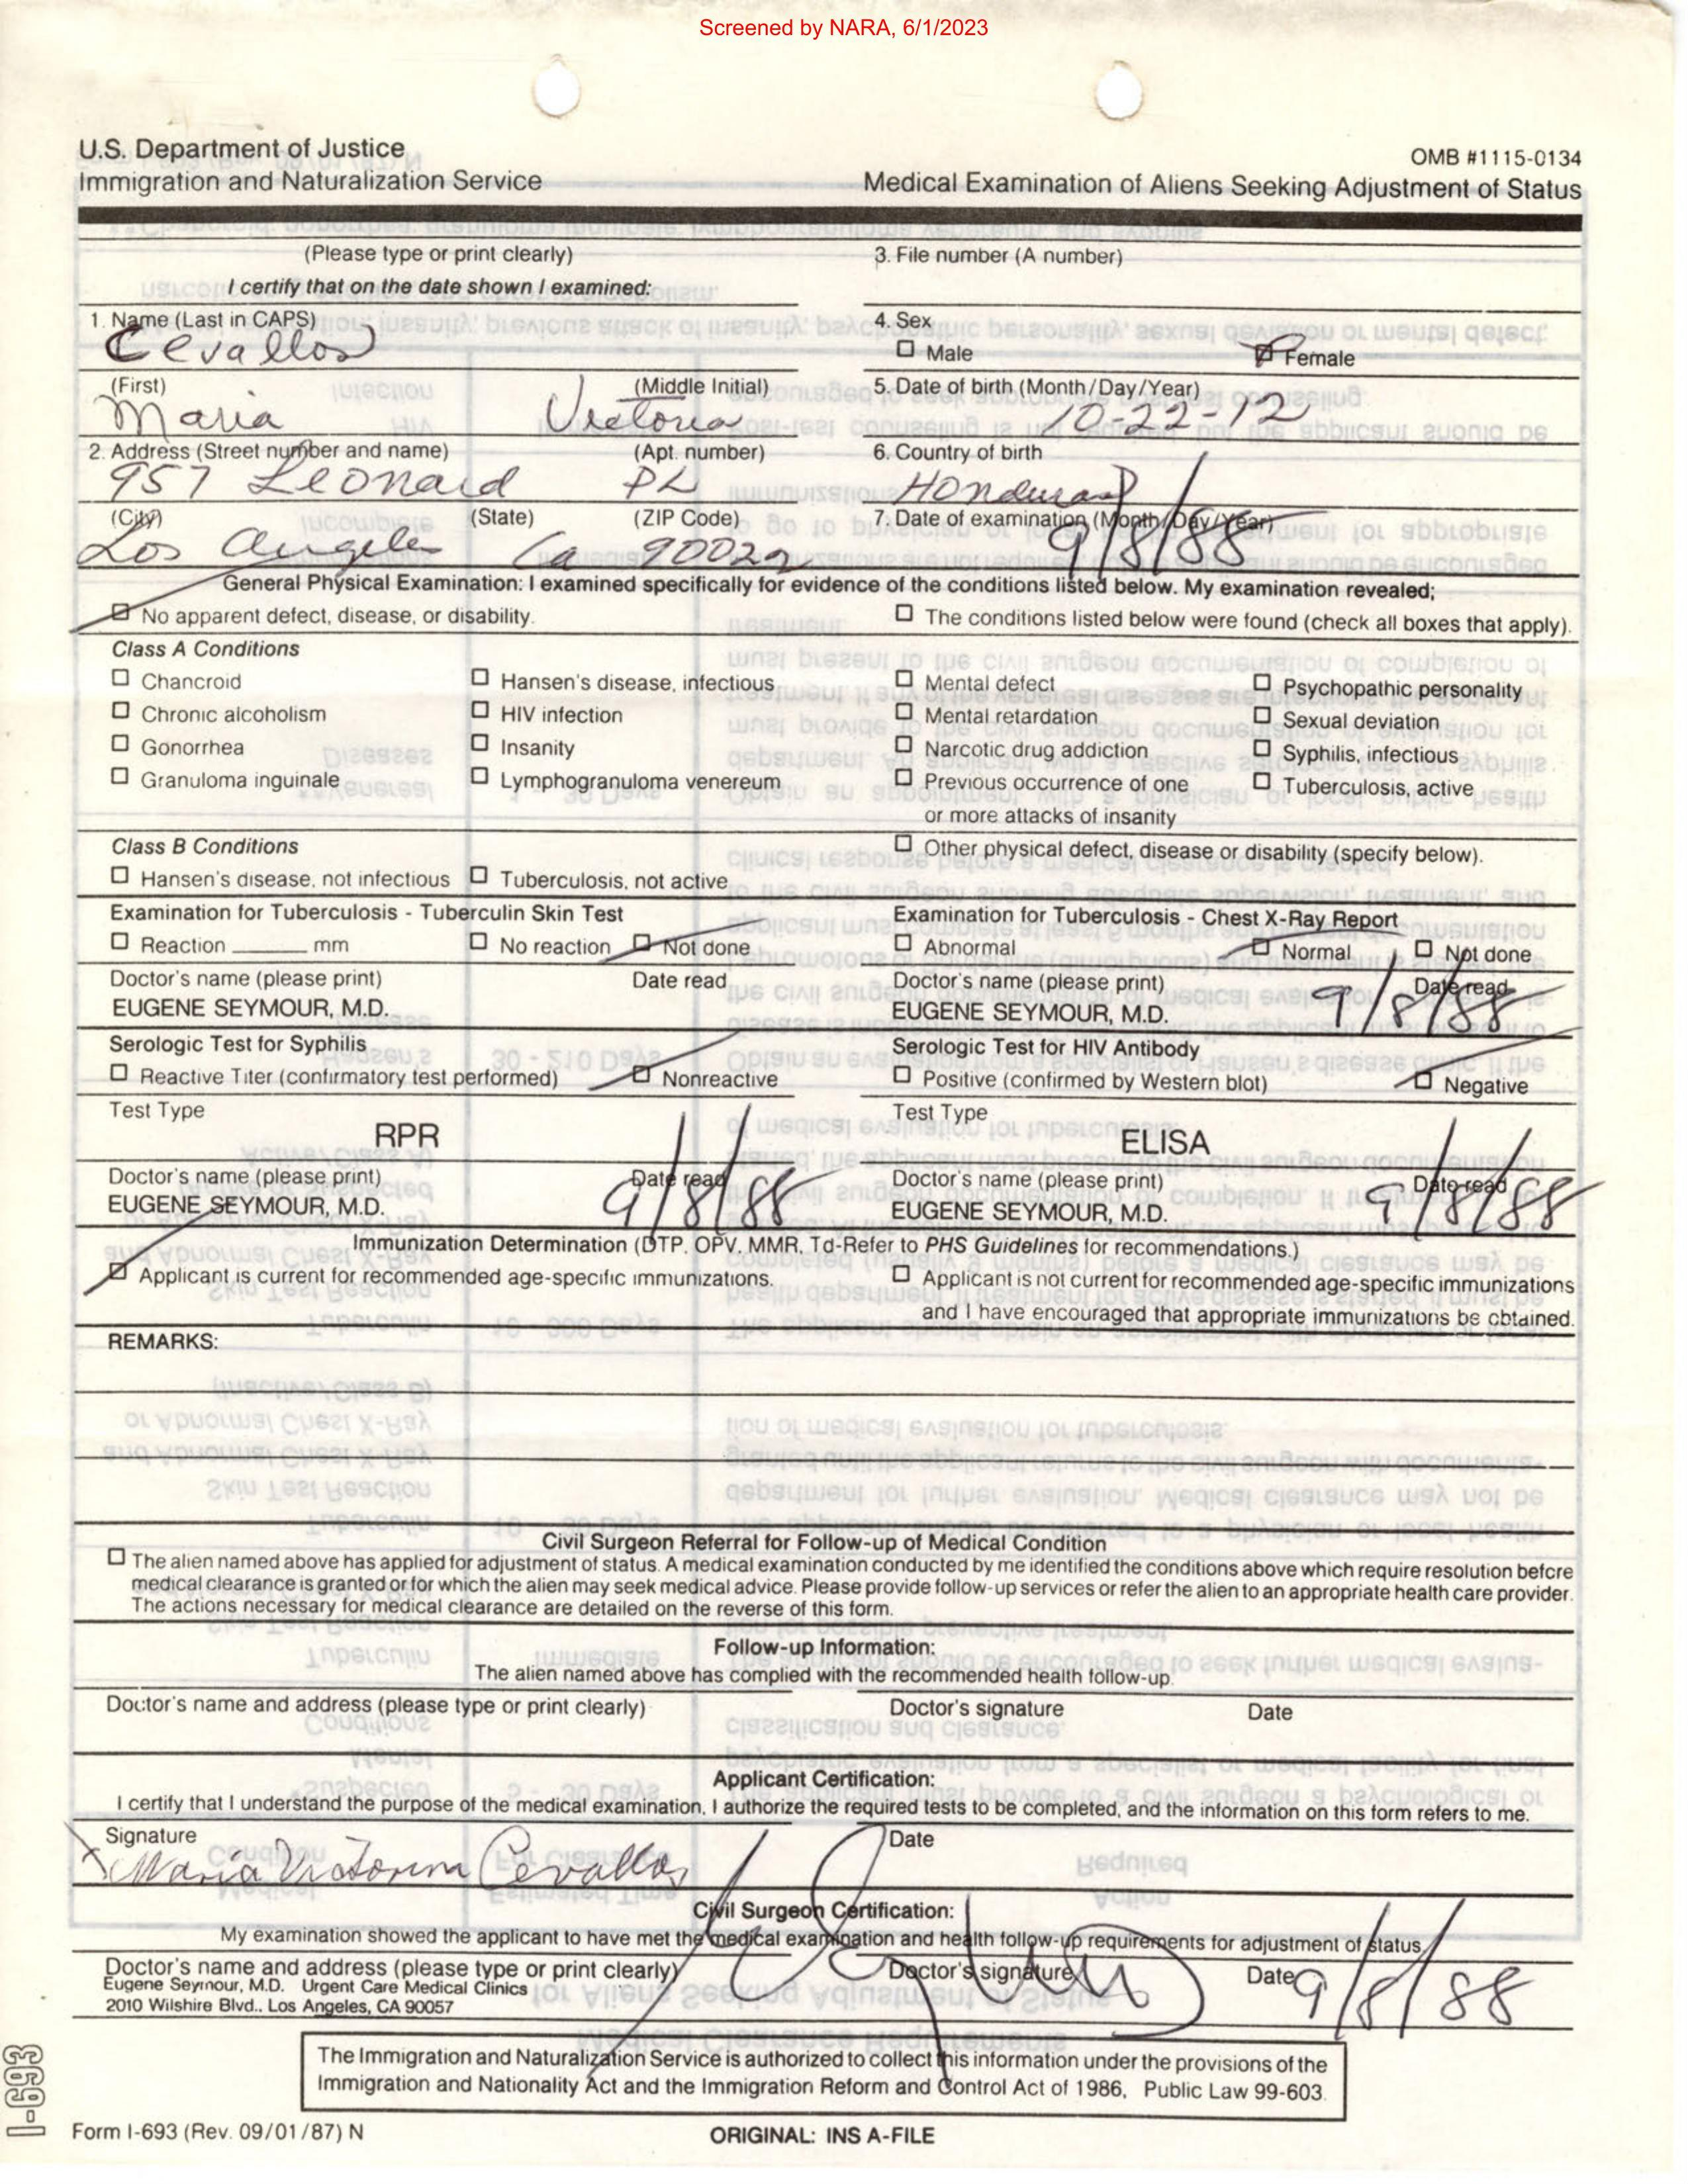 Screened by NARA, 6/1/2023
U.S. Department of Justice
Immigration and Naturalization Service
OMB #1115-0134
Medical Examination of Aliens Seeking Adjustment of Status
(Please type or print clearly)
I certify that on the date shown I examined:
3. File number (A number)
1. Name (Last in CAPS)
Cevallos
4. Sex
☐ Male ☑ Female
(First) (Middle Initial)
Maria Victoria
5. Date of birth (Month/Day/Year)
10-22-12
2. Address (Street number and name) (Apt. number)
957 Leonard PL
6. Country of birth
Honduras
(City) (State) (ZIP Code)
Los Angeles Ca 90022
7. Date of examination (Month/Day/Year)
9/8/88
General Physical Examination: I examined specifically for evidence of the conditions listed below. My examination revealed;
☑ No apparent defect, disease, or disability.
☐ The conditions listed below were found (check all boxes that apply).
Class A Conditions
☐ Chancroid ☐ Hansen's disease, infectious ☐ Mental defect ☐ Psychopathic personality
☐ Chronic alcoholism ☐ HIV infection ☐ Mental retardation ☐ Sexual deviation
☐ Gonorrhea ☐ Insanity ☐ Narcotic drug addiction ☐ Syphilis, infectious
☐ Granuloma inguinale ☐ Lymphogranuloma venereum ☐ Previous occurrence of one ☐ Tuberculosis, active
or more attacks of insanity
Class B Conditions
☐ Other physical defect, disease or disability (specify below).
☐ Hansen's disease, not infectious ☐ Tuberculosis, not active
Examination for Tuberculosis - Tuberculin Skin Test
☐ Reaction ______ mm ☐ No reaction ☑ Not done
Doctor's name (please print) Date read
EUGENE SEYMOUR, M.D.
Examination for Tuberculosis - Chest X-Ray Report
☐ Abnormal ☑ Normal ☐ Not done
Doctor's name (please print) Date read
EUGENE SEYMOUR, M.D. 9/8/88
Serologic Test for Syphilis
☐ Reactive Titer (confirmatory test performed) ☑ Nonreactive
Test Type
RPR
Doctor's name (please print) Date read
EUGENE SEYMOUR, M.D. 9/8/88
Serologic Test for HIV Antibody
☐ Positive (confirmed by Western blot) ☑ Negative
Test Type
ELISA
Doctor's name (please print) Date read
EUGENE SEYMOUR, M.D. 9/8/88
Immunization Determination (DTP, OPV, MMR, Td-Refer to PHS Guidelines for recommendations.)
☑ Applicant is current for recommended age-specific immunizations.
☐ Applicant is not current for recommended age-specific immunizations
and I have encouraged that appropriate immunizations be obtained.
REMARKS:
Civil Surgeon Referral for Follow-up of Medical Condition
☐ The alien named above has applied for adjustment of status. A medical examination conducted by me identified the conditions above which require resolution before
medical clearance is granted or for which the alien may seek medical advice. Please provide follow-up services or refer the alien to an appropriate health care provider.
The actions necessary for medical clearance are detailed on the reverse of this form.
Follow-up Information:
The alien named above has complied with the recommended health follow-up.
Doctor's name and address (please type or print clearly) Doctor's signature Date
Applicant Certification:
I certify that I understand the purpose of the medical examination, I authorize the required tests to be completed, and the information on this form refers to me.
Signature Date
x Maria Victoria Cevallos
Civil Surgeon Certification:
My examination showed the applicant to have met the medical examination and health follow-up requirements for adjustment of status.
Doctor's name and address (please type or print clearly) Doctor's signature Date
Eugene Seymour, M.D. Urgent Care Medical Clinics
2010 Wilshire Blvd., Los Angeles, CA 90057
9/8/88
The Immigration and Naturalization Service is authorized to collect this information under the provisions of the
Immigration and Nationality Act and the Immigration Reform and Control Act of 1986, Public Law 99-603.
I-693
Form I-693 (Rev. 09/01/87) N
ORIGINAL: INS A-FILE